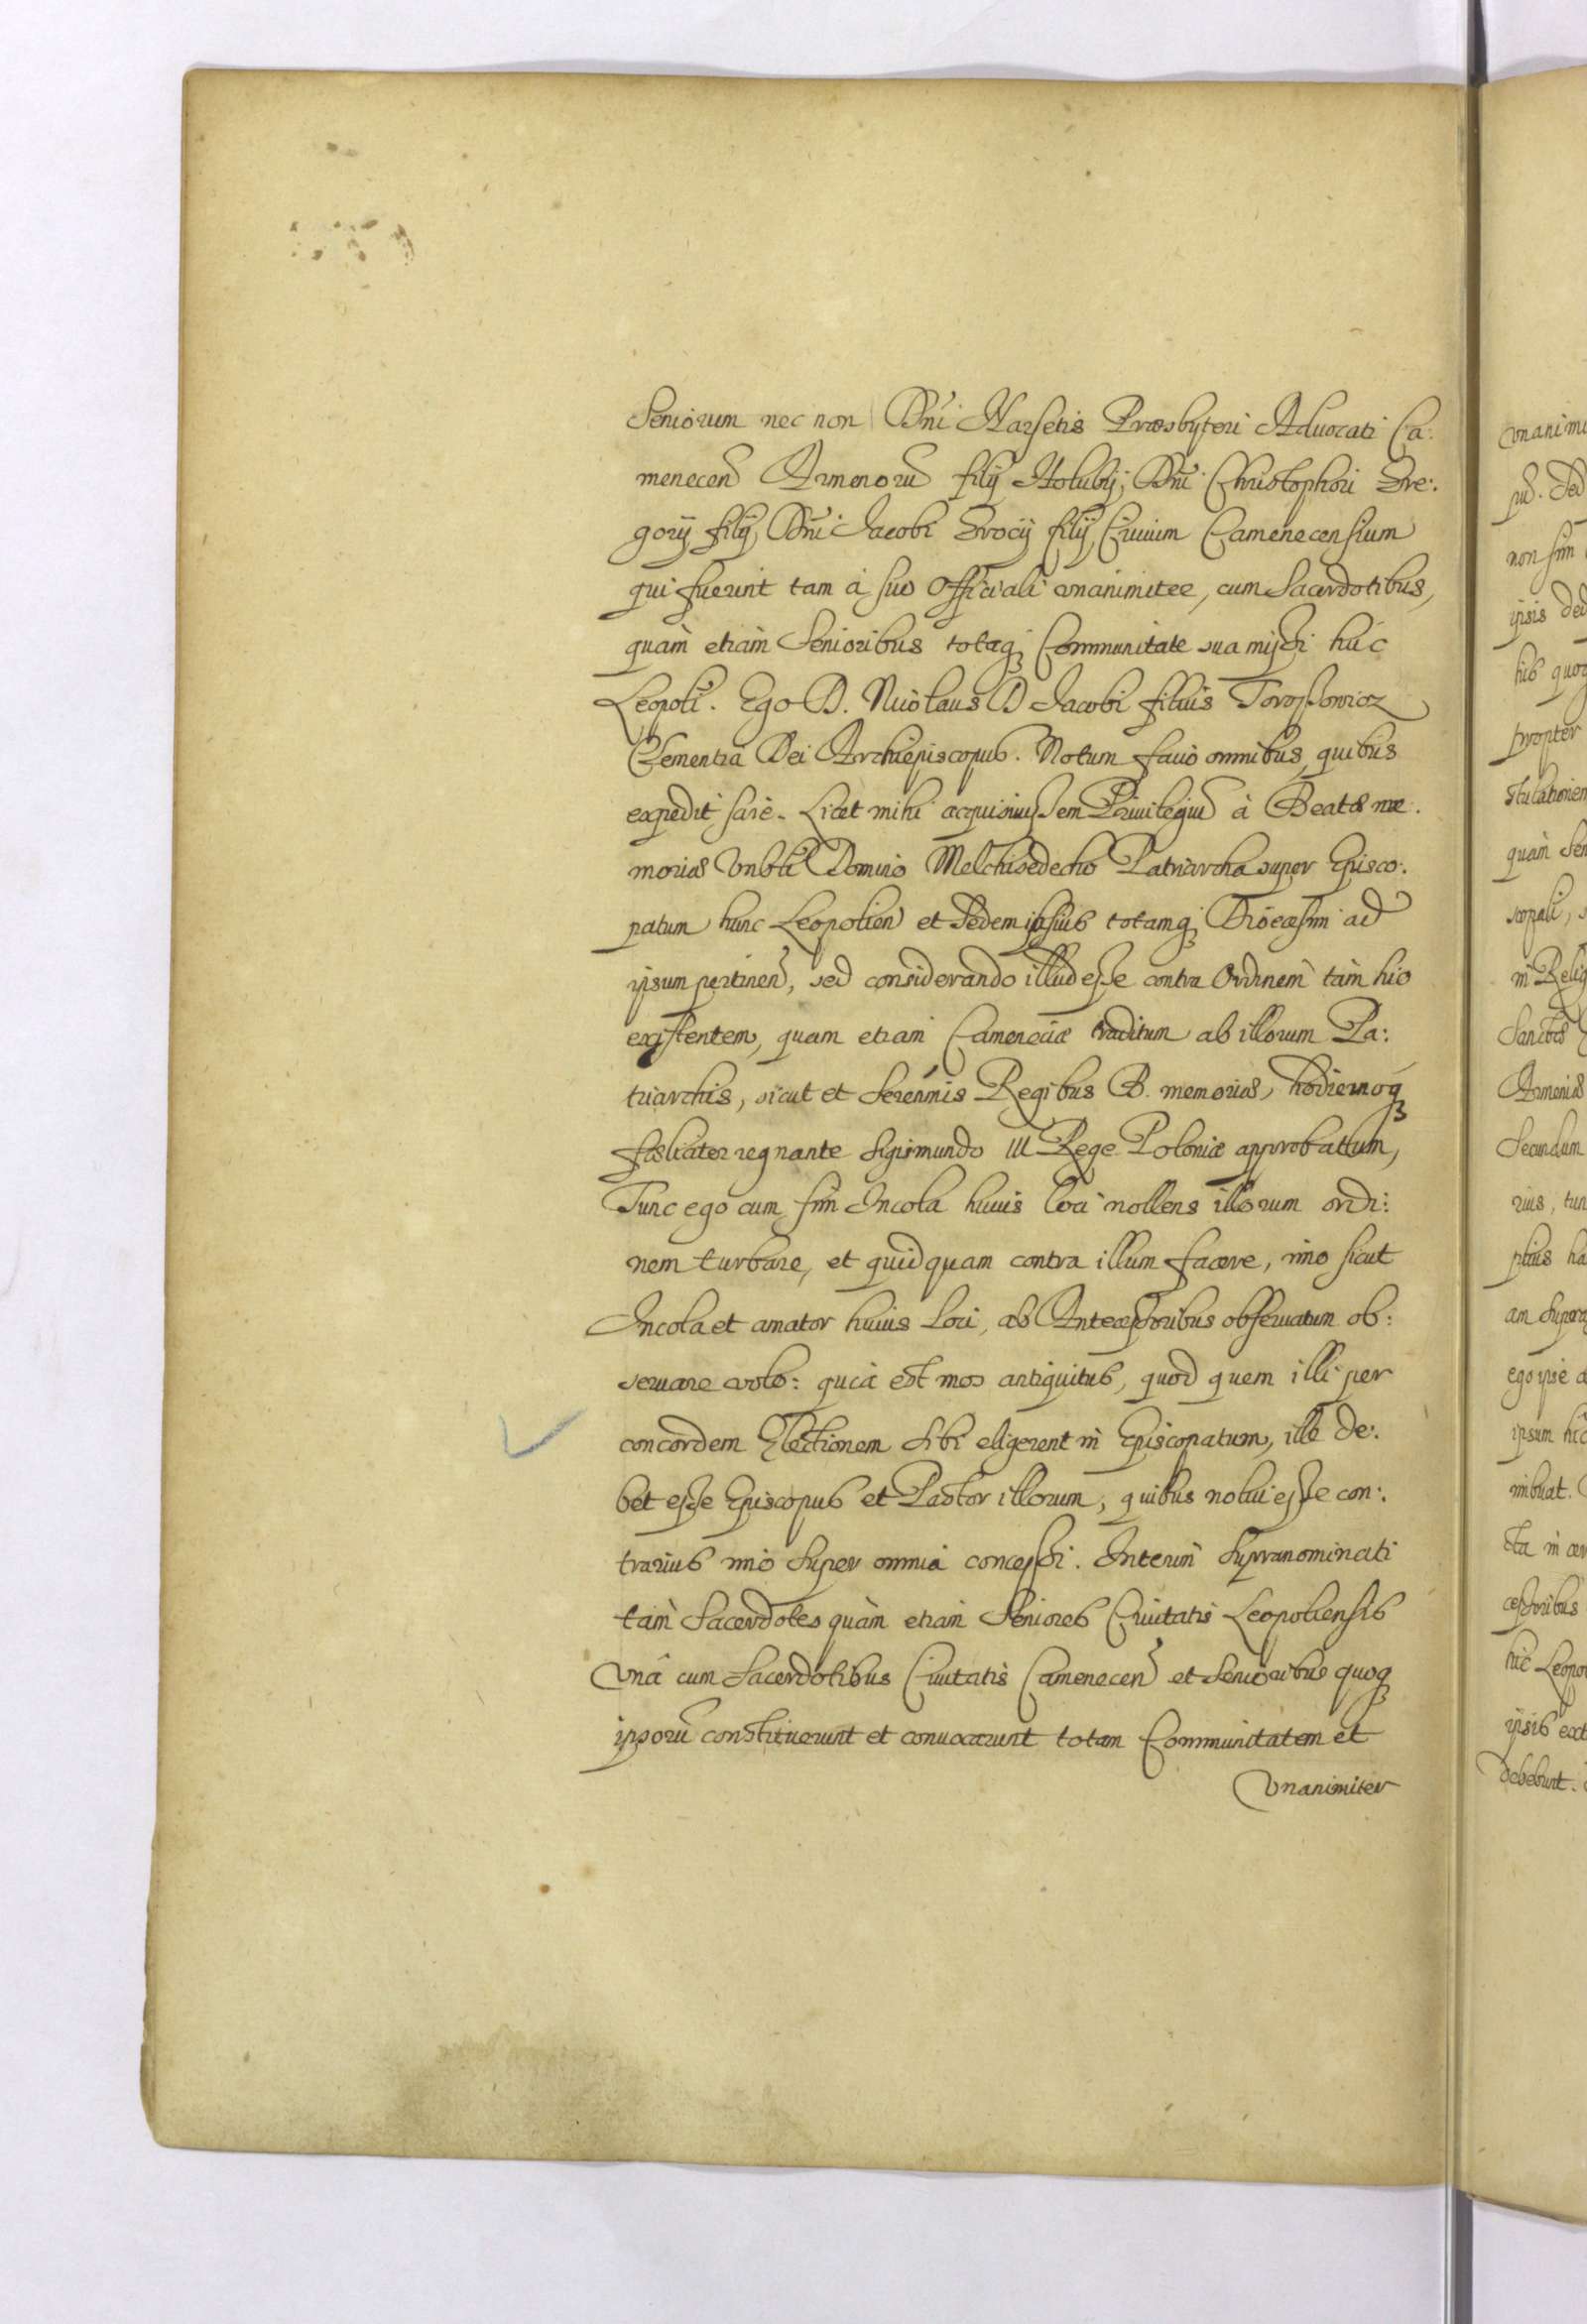 Seniorum nec non Dn̄i Narsetis Præsbyteri Aduocati Ca:
menecen̄ Armenorū filÿ Holubÿ, Dn̄i Christophori Gre:
gorÿ filÿ, Dn̄i Jacobi filÿ, Ciuium Camenecensium
qui fuerint tam à suo Officiali vnanimitee, cum Sacerdotibus,
quàm etiàm Senioribus totaq; Communitate sua mißi hùc
Leopoli. Ego D. Nicolaus D Jacobi filius Torosowicz
Clementia Dei Archiepiscopus. Notum facio omnibus, quibus
expedit scire. Licet mihi acquisiuißem Priuilegiū à Beatæ me:
moriæ Domino Melchisedecho Patriarcha super Episco:
patum hunc Leopolien̄ et Sedem ipsius totamq; Diœcesim ad
ipsum pertinen̄, sed considerando illud eße contra Ordinem tàm hic
existentem, quam etiam Cameneciæ traditum ab illorum Pa:
triarchis, sicut et Serenmis Regibus B. memoriæ, hodiernoq;
fæliciter regnante Sigismundo III Rege Poloniæ approbatum,
Tunc ego cum sim Incola huius loci nollens illorum ordi:
nem turbare, et quidquam contra illum facere, imo sicut
Incola et amator huius Loci, ab Anteceßoribus obseruatum ob:
seruare volo: quia est mos antiquitus, quod quem illi per
concordem Electionem sibi eligerent in Episcopatum, ille de:
bet eße Episcopus et Pastor illorum, quibus nolui eße con:
trarius imò super omnia conceßi. Interim Supranominati
tàm Sacerdotes quàm etiam Seniores Ciuitatis Leopoliensis
Vnâ cum Sacerdotibus Ciuitatis Camenecen̄ et Senioribus quoq;
ipsorū constituerunt et conuocarunt totam Communitatem et
Vnanimiter